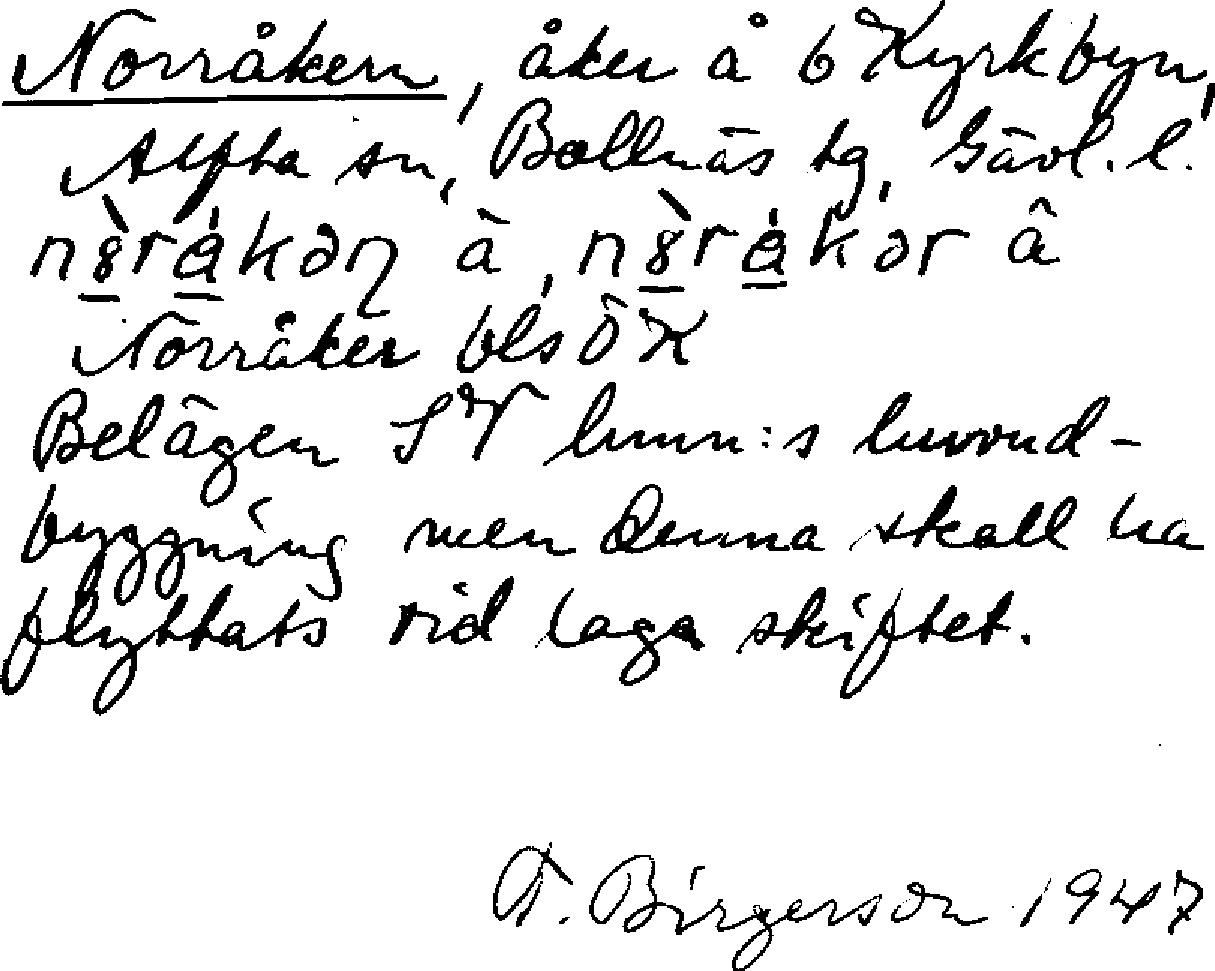 Norråkern, åker å 6 Kyrkbyn,
Alfta sn, Bollnäs tg, Gävl. l.
Norråker bls ÖK
Belägen SV hmn:s huvud-
byggning men denna skall ha
flyttats vid laga skiftet.
F. Birgerson 1947